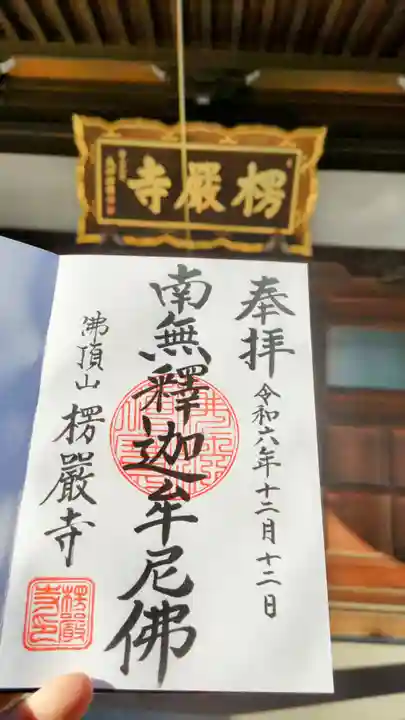 楞嚴寺
奉拝
令和六年十二月十二日
南無釋迦牟尼佛
佛頂山
楞嚴寺
楞嚴寺印